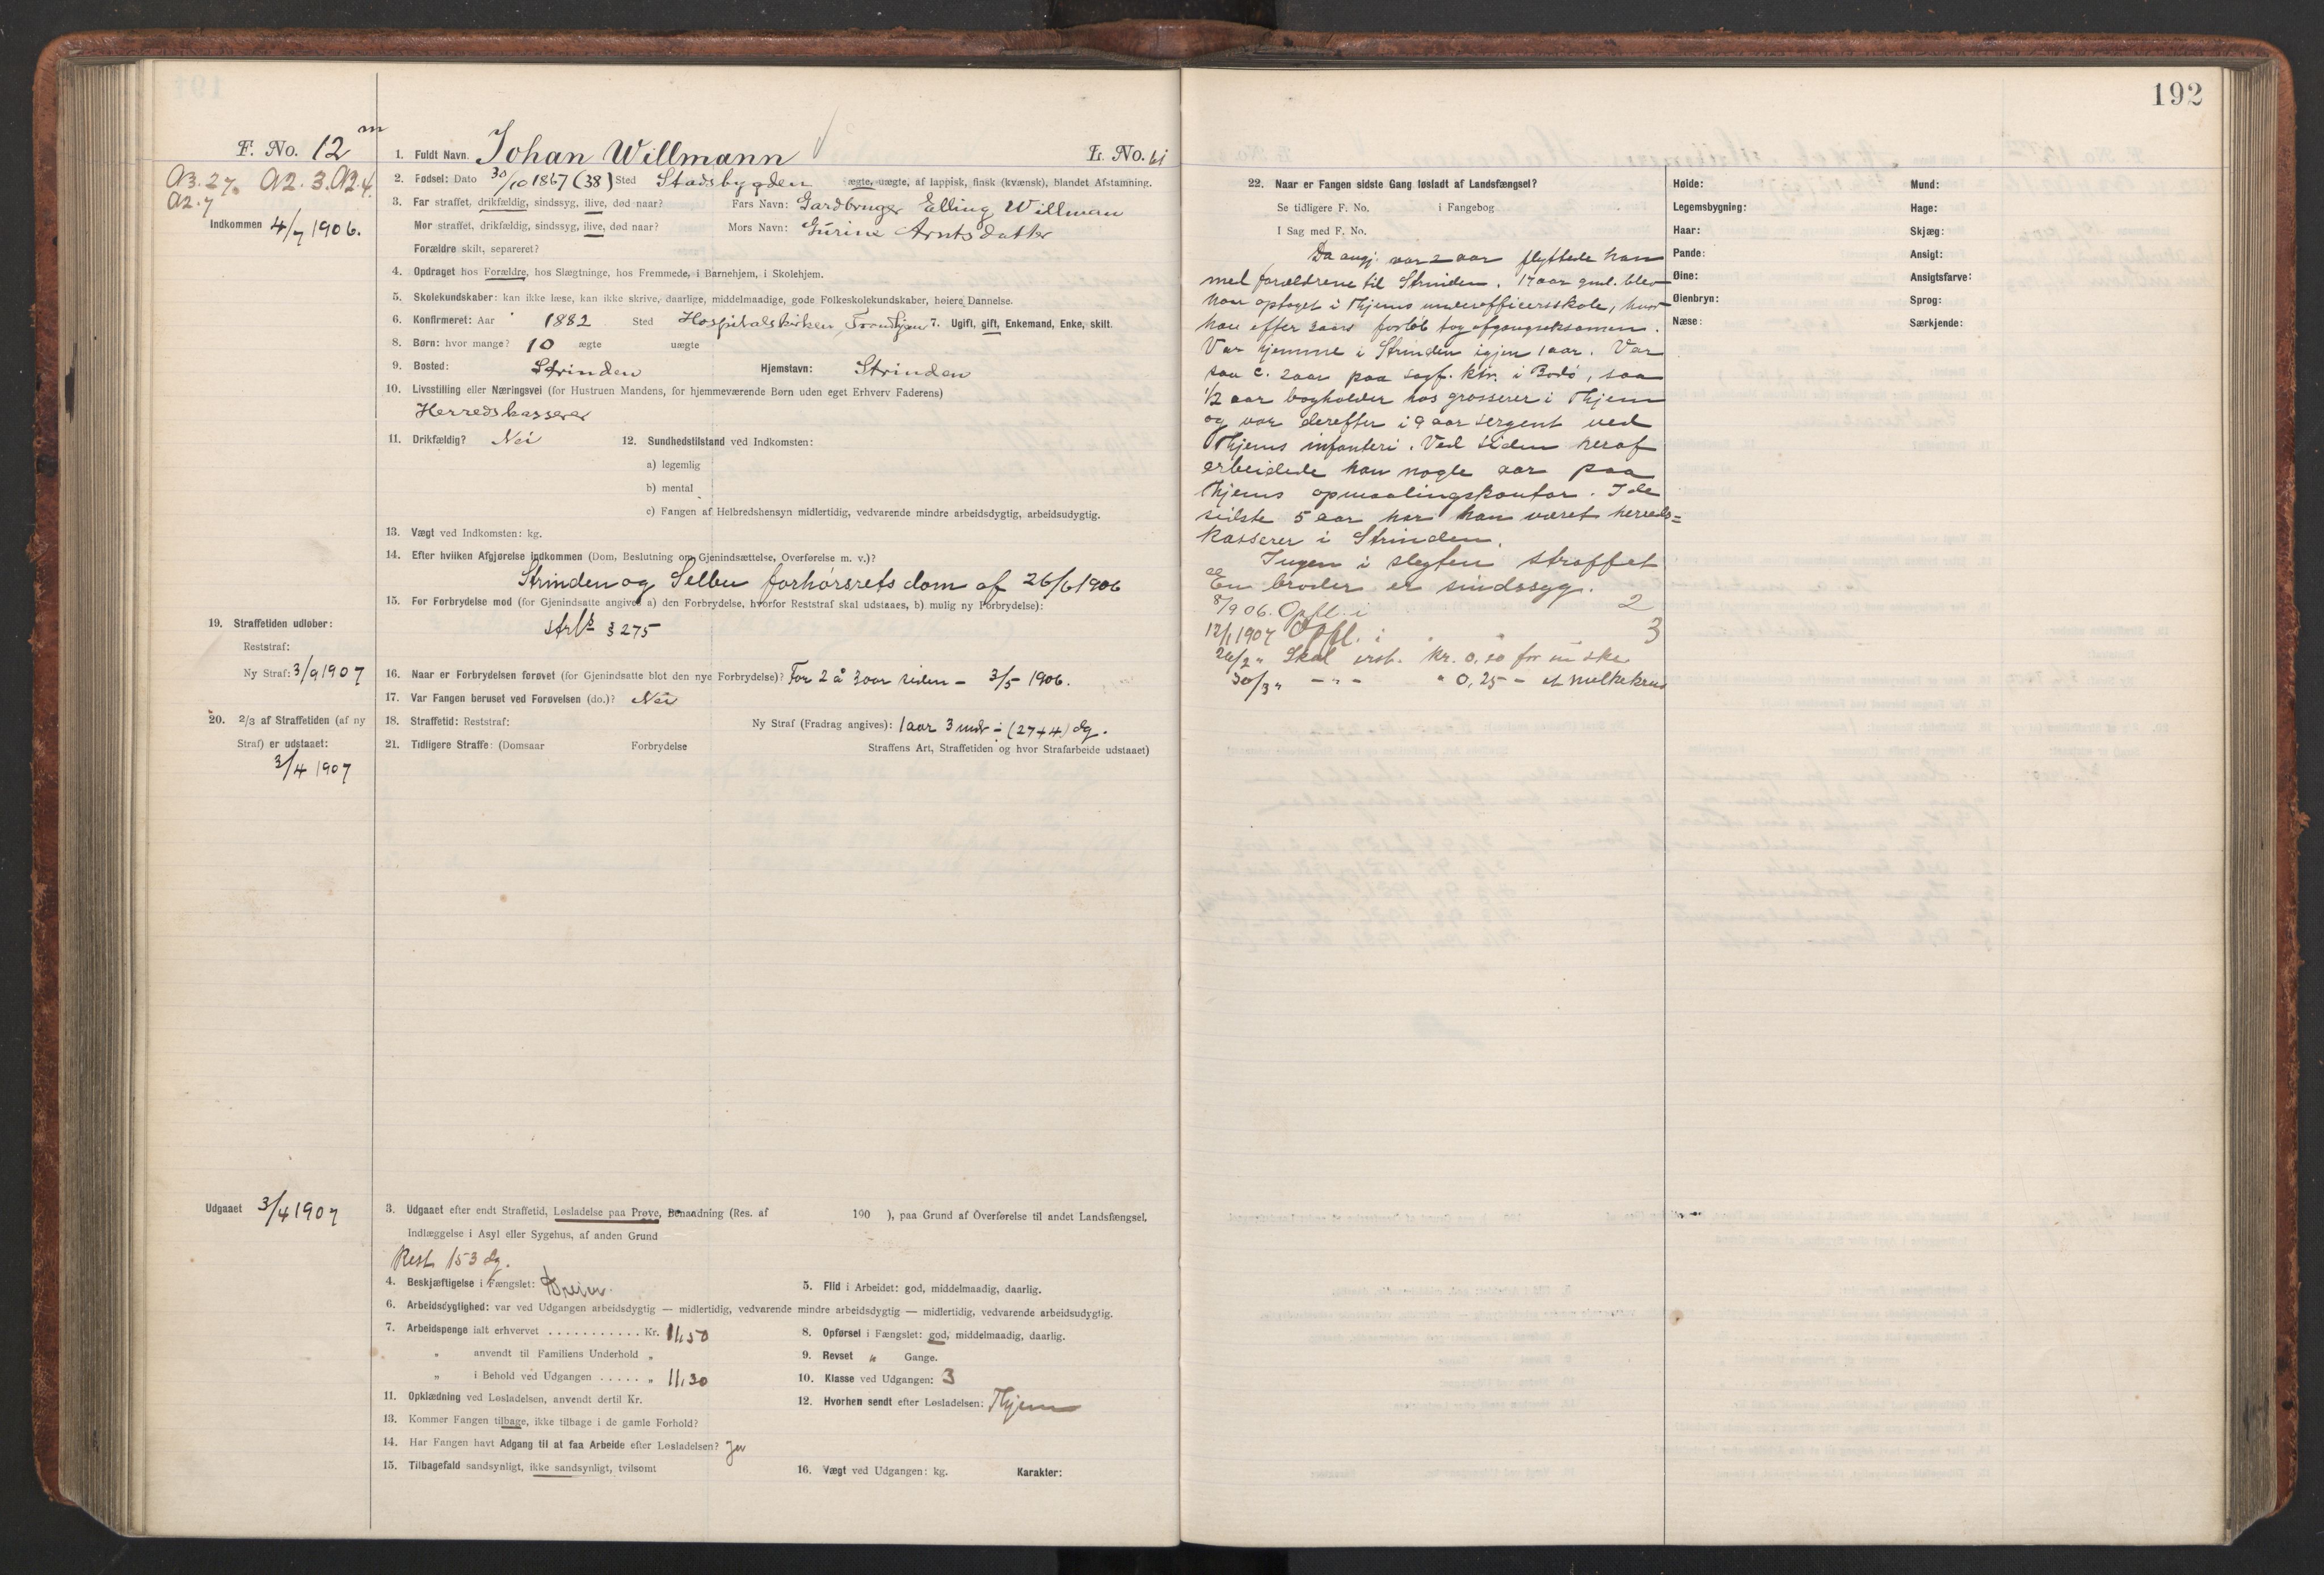 192
F. No. 12 m
1. Fuldt Navn. Johan Willmann
L. No. 61
A3.27. A2.3. A2.4.
A2.7
2. Fødsel: Dato 30/10 1867 (38) Sted Stadsbygden ægte, uægte, af lappisk, finsk (kvænsk), blandet Afstamning.
3. Far straffet, drikfældig, sindssyg, ilive, død naar? Fars Navn: Gardbruger Elling Willman
Indkommen 4/7 1906.
Mor straffet, drikfældig, sindssyg, ilive, død naar? Mors Navn: Gurine Arntsdatter
Forældre skilt, separeret?
4. Opdraget hos Forældre, hos Slægtninge, hos Fremmede, i Barnehjem, i Skolehjem.
5. Skolekundskaber: kan ikke læse, kan ikke skrive, daarlige, middelmaadige, gode Folkeskolekundskaber, høiere Dannelse.
6. Konfirmeret: Aar 1882 Sted Hospitalskirken, Trondhjem 7. Ugift, gift, Enkemand, Enke, skilt.
8. Børn: hvor mange? 10 ægte uægte
9. Bosted: Strinden Hjemstavn: Strinden
10. Livsstilling eller Næringsvei (for Hustruen Mandens, for hjemmeværende Børn uden eget Erhverv Faderens)
Herredskasserer
11. Drikfældig? Nei 12. Sundhedstilstand ved Indkomsten:
a) legemlig
b) mental
c) Fangen af Helbredshensyn midlertidig, vedvarende mindre arbeidsdygtig, arbeidsudygtig.
13. Vægt ved Indkomsten: kg.
14. Efter hvilken Afgjørelse indkommen (Dom, Beslutning om Gjenindsættelse, Overførelse m. v.)?
Strinden og Selbu forhørsrets dom af 26/6 1906
15. For Forbrydelse mod (for Gjenindsatte angives a) den Forbrydelse, hvorfor Reststraf skal udstaaes, b) mulig ny Forbrydelse):
strfl § 275
19. Straffetiden udløber:
Reststraf:
Ny Straf: 3/9 1907
16. Naar er Forbrydelsen forøvet (for Gjenindsatte blot den nye Forbrydelse)? For 2 à 3 aar siden – 3/5 1906.
17. Var Fangen beruset ved Forøvelsen (do.)? Nei
20. 2/3 af Straffetiden (af ny
Straf) er udstaaet:
3/4 1907
18. Straffetid: Reststraf: Ny Straf (Fradrag angives): 1 aar 3 mdr ÷ (27+4) dg.
21. Tidligere Straffe: (Domsaar Forbrydelse Straffens Art, Straffetiden og hvor Strafarbeide udstaaet)
Udgaaet 3/4 1907
3. Udgaaet efter endt Straffetid, Løsladelse paa Prøve, Benaadning (Res. af 190 ), paa Grund af Overførelse til andet Landsfængsel.
Indlæggelse i Asyl eller Sygehus, af anden Grund
Rest 153 dg.
4. Beskjæftigelse i Fængslet:
5. Flid i Arbeidet: god, middelmaadig, daarlig.
6. Arbeidsdygtighed: var ved Udgangen arbeidsdygtig — midlertidig, vedvarende mindre arbeidsdygtig — midlertidig, vedvarende arbeidsudygtig.
7. Arbeidspenge ialt erhvervet ........... Kr. 11,50
8. Opførsel i Fængslet: god, middelmaadig, daarlig.
„ anvendt til Familiens Underhold „
9. Revset „ Gange.
„ i Behold ved Udgangen ..... „ 11,30
10. Klasse ved Udgangen: 3
11. Opklædning ved Løsladelsen, anvendt dertil Kr.
12. Hvorhen sendt efter Løsladelsen: Thjem
13. Kommer Fangen tilbage, ikke tilbage i de gamle Forhold?
14. Har Fangen havt Adgang til at faa Arbeide efter Løsladelsen? Ja
15. Tilbagefald sandsynligt, ikke sandsynligt, tvilsomt
16. Vægt ved Udgangen: kg. Karakter:
22. Naar er Fangen sidste Gang løsladt af Landsfængsel?
Se tidligere F. No. i Fangebog
I Sag med F. No.
Da angj. var 2 aar flyttede han
med forældrene til Strinden. 17 aar gml. blev
han optaget i Thjems underofficersskole, hvor
han efter 3 aars forløb tog afgangseksamen.
Var hjemme i Strinden igjen 1 aar. Var
saa c. 2 aar paa sagf. ktr. i Bodø, saa
1/2 aar bogholder hos grosserer i Thjem
og var derefter i 9 aar sergent ved
Thjems infanteri. Ved siden heraf
arbeidede han nogle aar paa
Thjems opmaalingskontor. I de
sidste 5 aar har han været herreds=
kasserer i Strinden.
Ingen i slegten straffet
En broder er sindssyg.
8/9 06. Opfl. i 2
12/1 1907 Opfl. i „ „ 3
26/2 „ Skal erst. Kr. 0.20 for en ske
30/3 „ – „ – „ 0,25 – et melkekrus
Høide:
Legemsbygning:
Haar:
Pande:
Øine:
Øienbryn:
Næse:
Mund:
Hage:
Skjæg:
Ansigt:
Ansigtsfarve:
Sprog:
Særkjende: